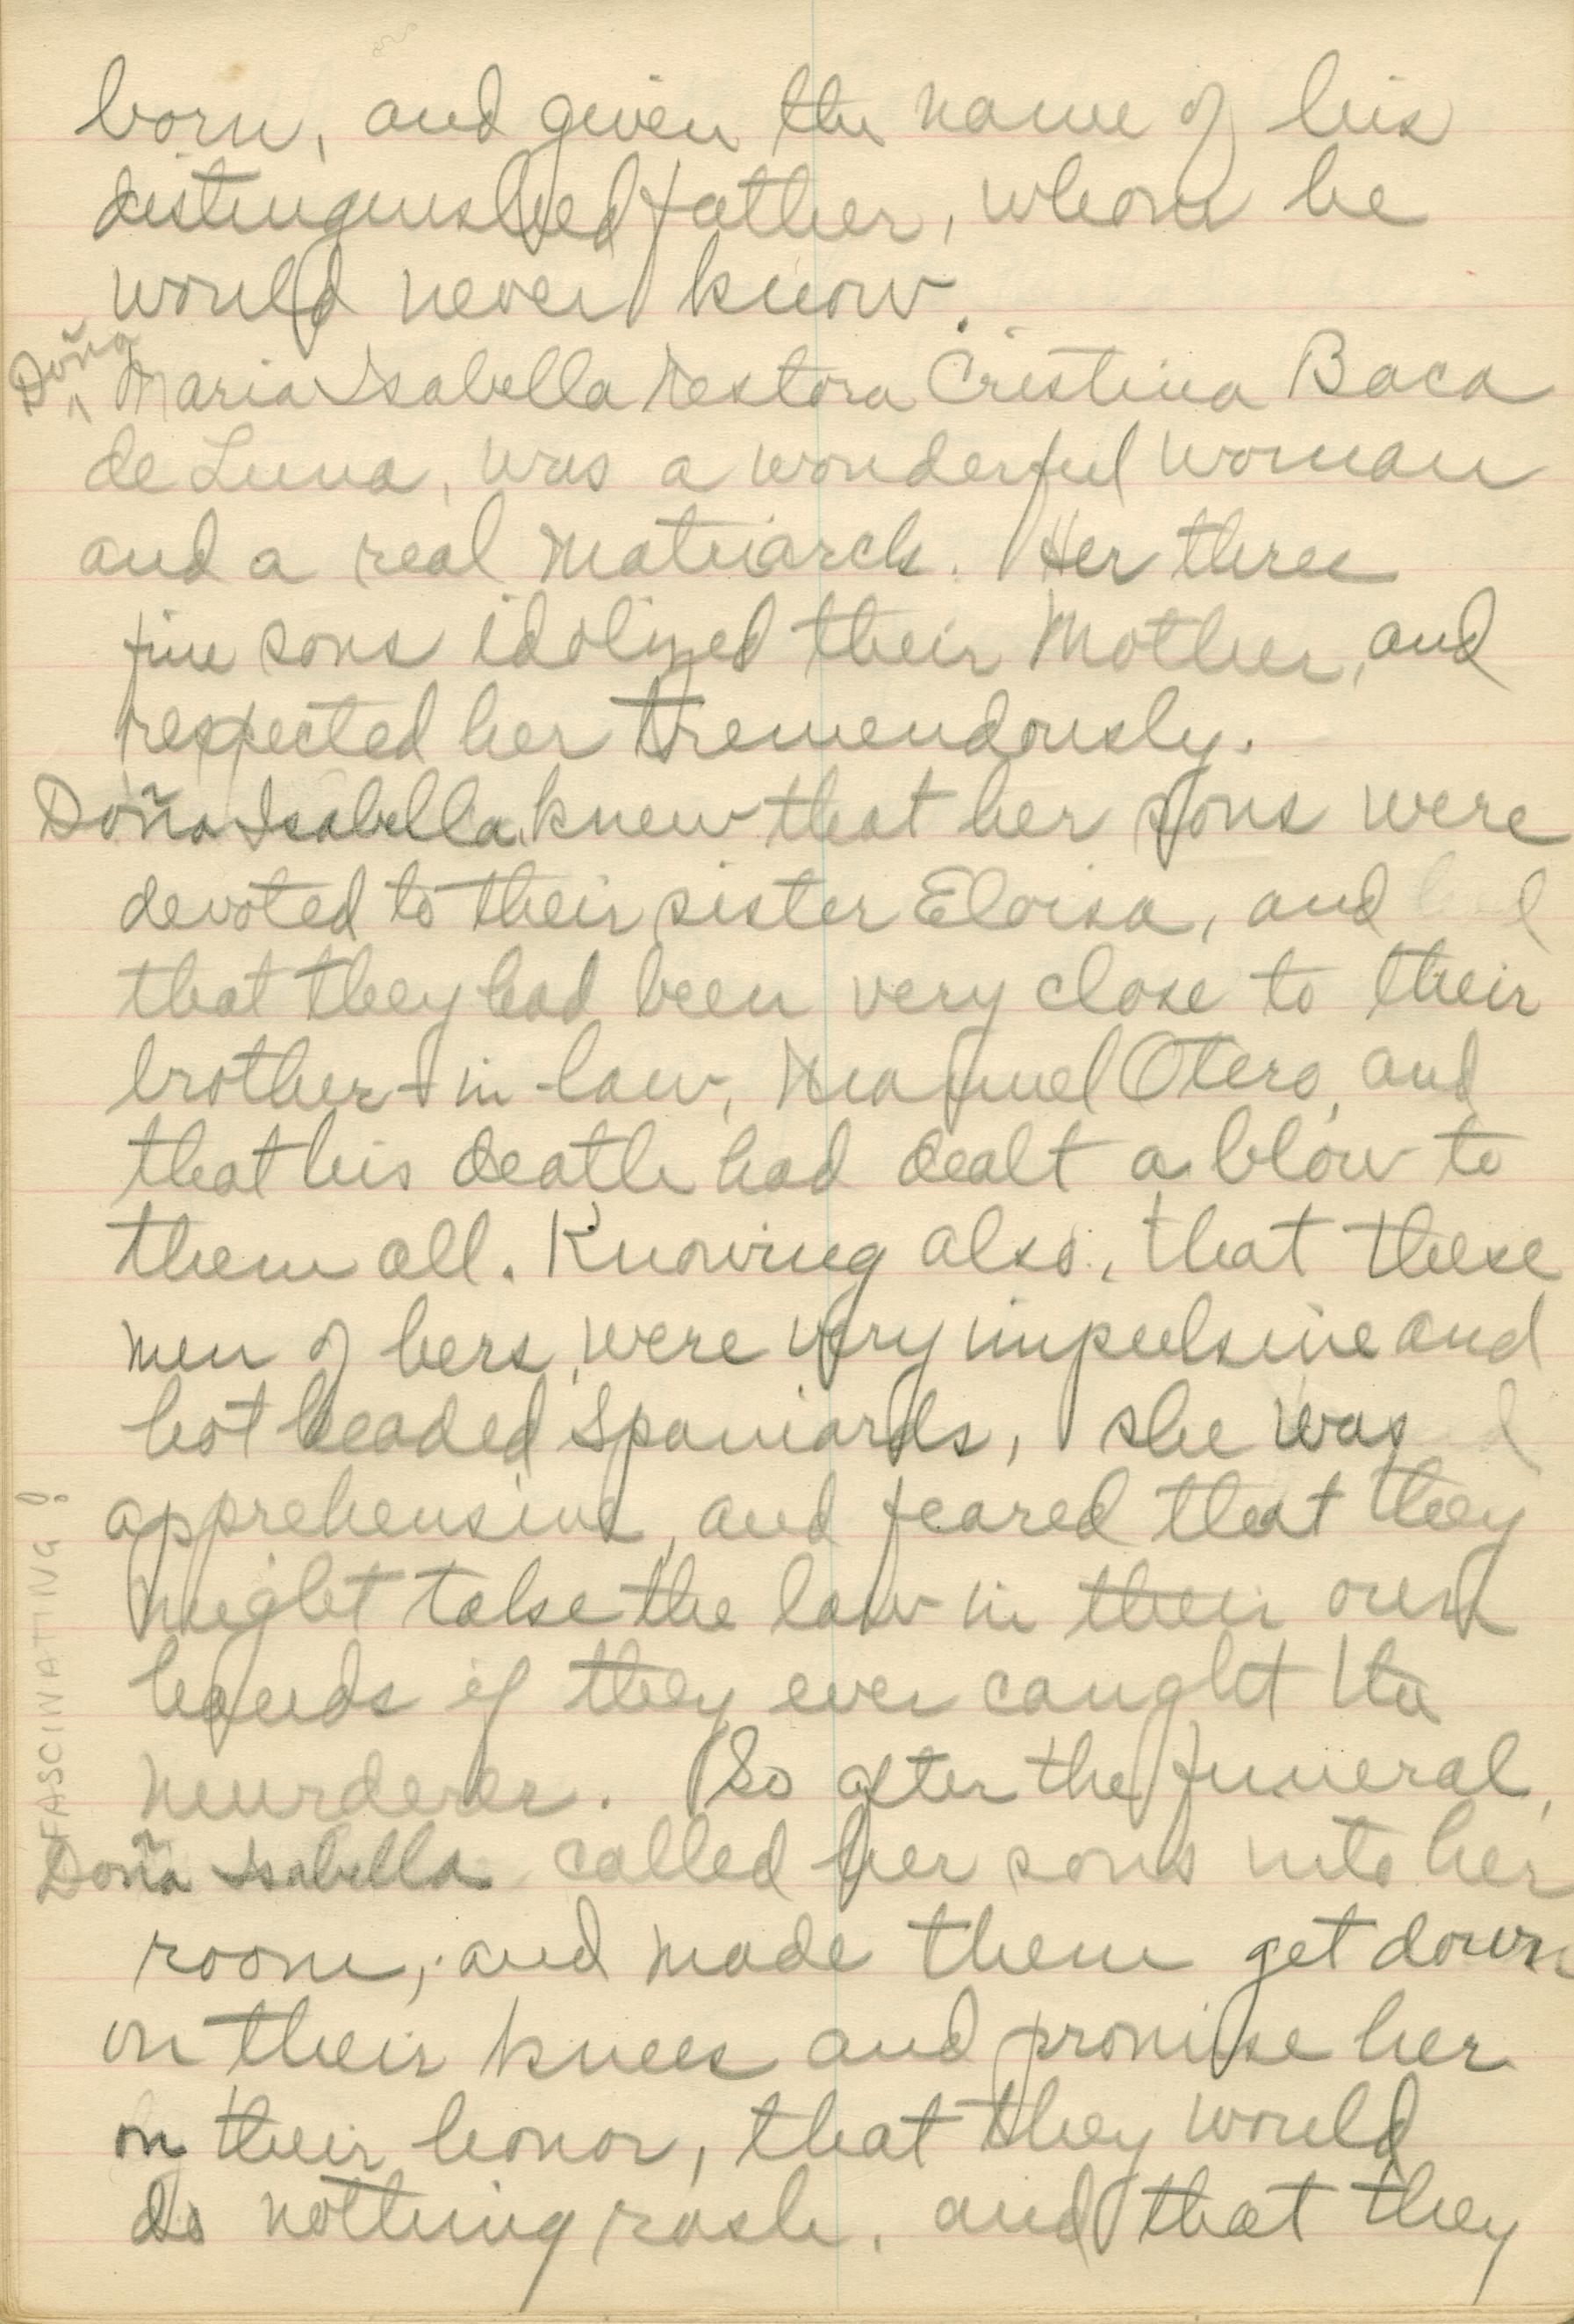 born, and given the name of his
distinguished father, whom he
would never know.
Doña
Maria Isabella Nestora Cristina Baca
de Luna, was a wonderful woman
and a real Matriarch. Her three
fine sons idolized their Mother, and
respected her tremendously.
Doña Isabella, knew that her sons were
devoted to their sister Eloisa, and
that they had been very close to their
brother-in-law, Manuel Otero, and
that his death had dealt a blow to
them all. Knowing also, that these
men of hers, were very impulsive and
hot headed Spaniards, she was
apprehensive, and feared that they
might take the law in their own
hands if they ever caught the
murderer. So after the funeral,
Doña Isabella called her sons into her
room, and made them get down
on their knees and promise her
on their honor, that they would
do nothing rash, and that they
FASCINATING!